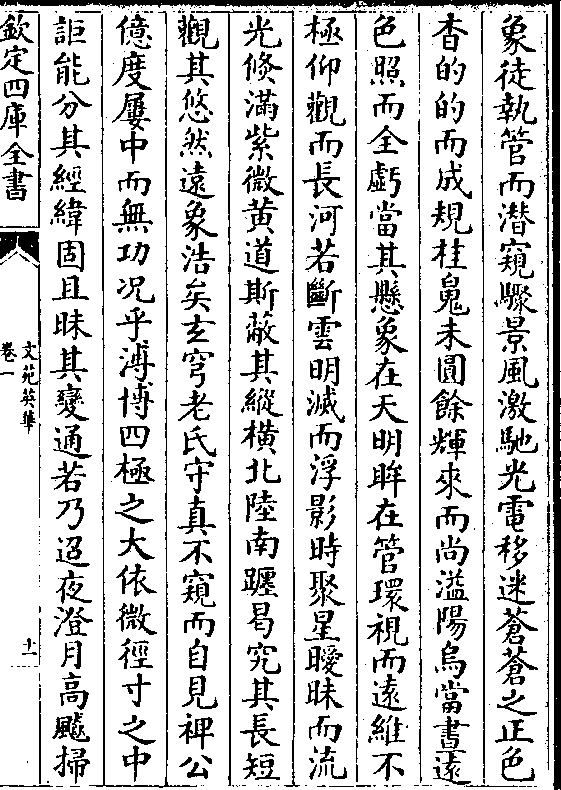 象徒執管而潛窺驟景風激馳光電移迷蒼蒼之正色
杳的的而成規桂㝹未圓餘輝來而尚溢陽烏當晝逺
色照而全虧當其懸象在天明眸在管環視而逺維不
極仰觀而長河若斷雲明滅而浮影時聚星曖昧而流
光倐滿紫微黄道斯蔽其縱橫北陸南躔曷究其長短
觀其悠然逺象浩矣玄穹老氏守真不窺而自見裨公
億度屢中而無功况乎溥博四極之大依微徑寸之中
詎能分其經緯固且昧其變通若乃迢夜澄月高飈掃
欽定四庫全書
文苑英華
卷一
十一